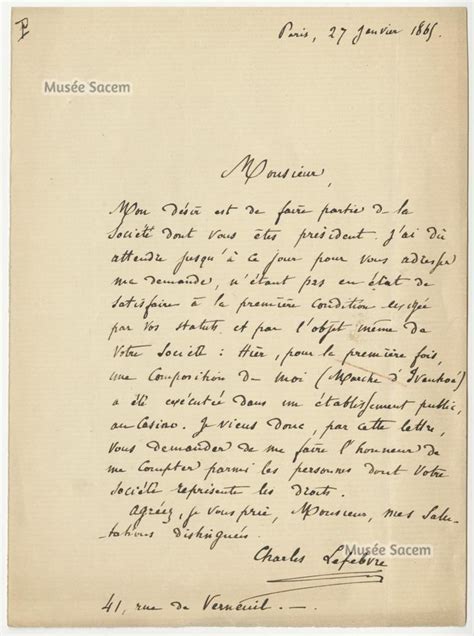 Paris, 27 Janvier 1865.
Musée Sacem
Monsieur,
Mon désir est de faire partie de la
Société dont vous êtes président. J'ai dû
attendre jusqu'à ce jour pour vous adresser
ma demande, n'étant pas en état de
satisfaire à la première condition exigée
par vos statuts et par l'objet même de
Votre Société : Hier, pour la première fois,
une Composition de moi (Marche d'Ivanhoé)
a été exécutée dans un établissement public,
au Casino. Je viens donc, par cette lettre,
vous demander de me faire l'honneur de
me compter parmi les personnes dont Votre
Société représente les droits.
Agréez, je vous prie, Monsieur, mes Salu-
tations distinguées.
Charles Lefebvre
Musée Sacem
41, rue de Verneuil. —